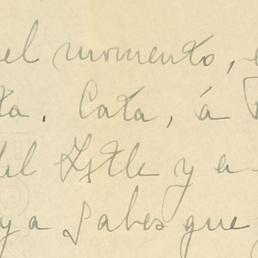 el momento,
ta. Cata, á
del Istle y a
ya sabes que